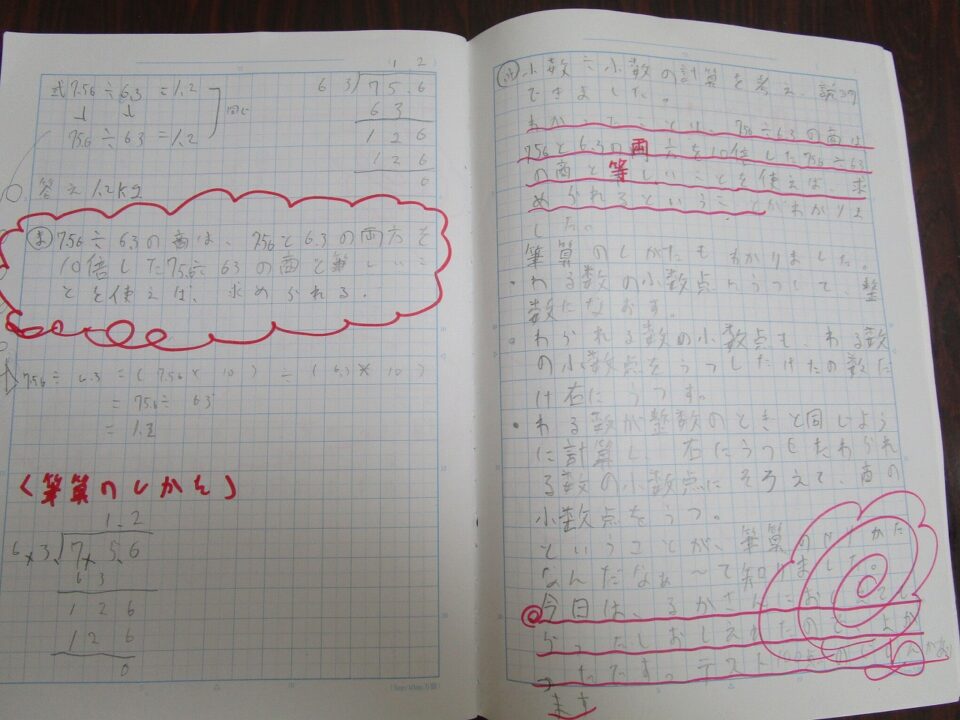 式 7.56÷6.3=1.2
↓ ↓ 同じ
75.6÷63=1.2
答え 1.2kg
1 2
63)75.6
63
126
126
0
ま 7.56÷6.3の商は、7.56と6.3の両方を
10倍した75.6÷63の商と等しいこ
とを使えば、求められる。
7.56÷6.3=(7.56×10)÷(6.3×10)
=75.6÷63
=1.2
〈筆算のしかた〉
1.2
6.3.)7.5.6
63
126
126
0
小数÷小数の計算を考え、説明
できました。
わかったことは、7.56÷6.3の商は
7.56と6.3の両方を10倍した75.6÷63
の商と等しいことを使えば、求
められるということがわかりま
した。
筆算のしかたもわかりました。
・わる数の小数点をうつして、整
数になおす。
・わられる数の小数点も、わる数
の小数点をうつしたけたの数だ
け右にうつす。
・わる数が整数のときと同じよう
に計算し、右にうつしたわられ
る数の小数点にそろえて、商の
小数点をうつ。
ということが、筆算のしかた
なんだなぁ〜て知りました。
今日は、
ます